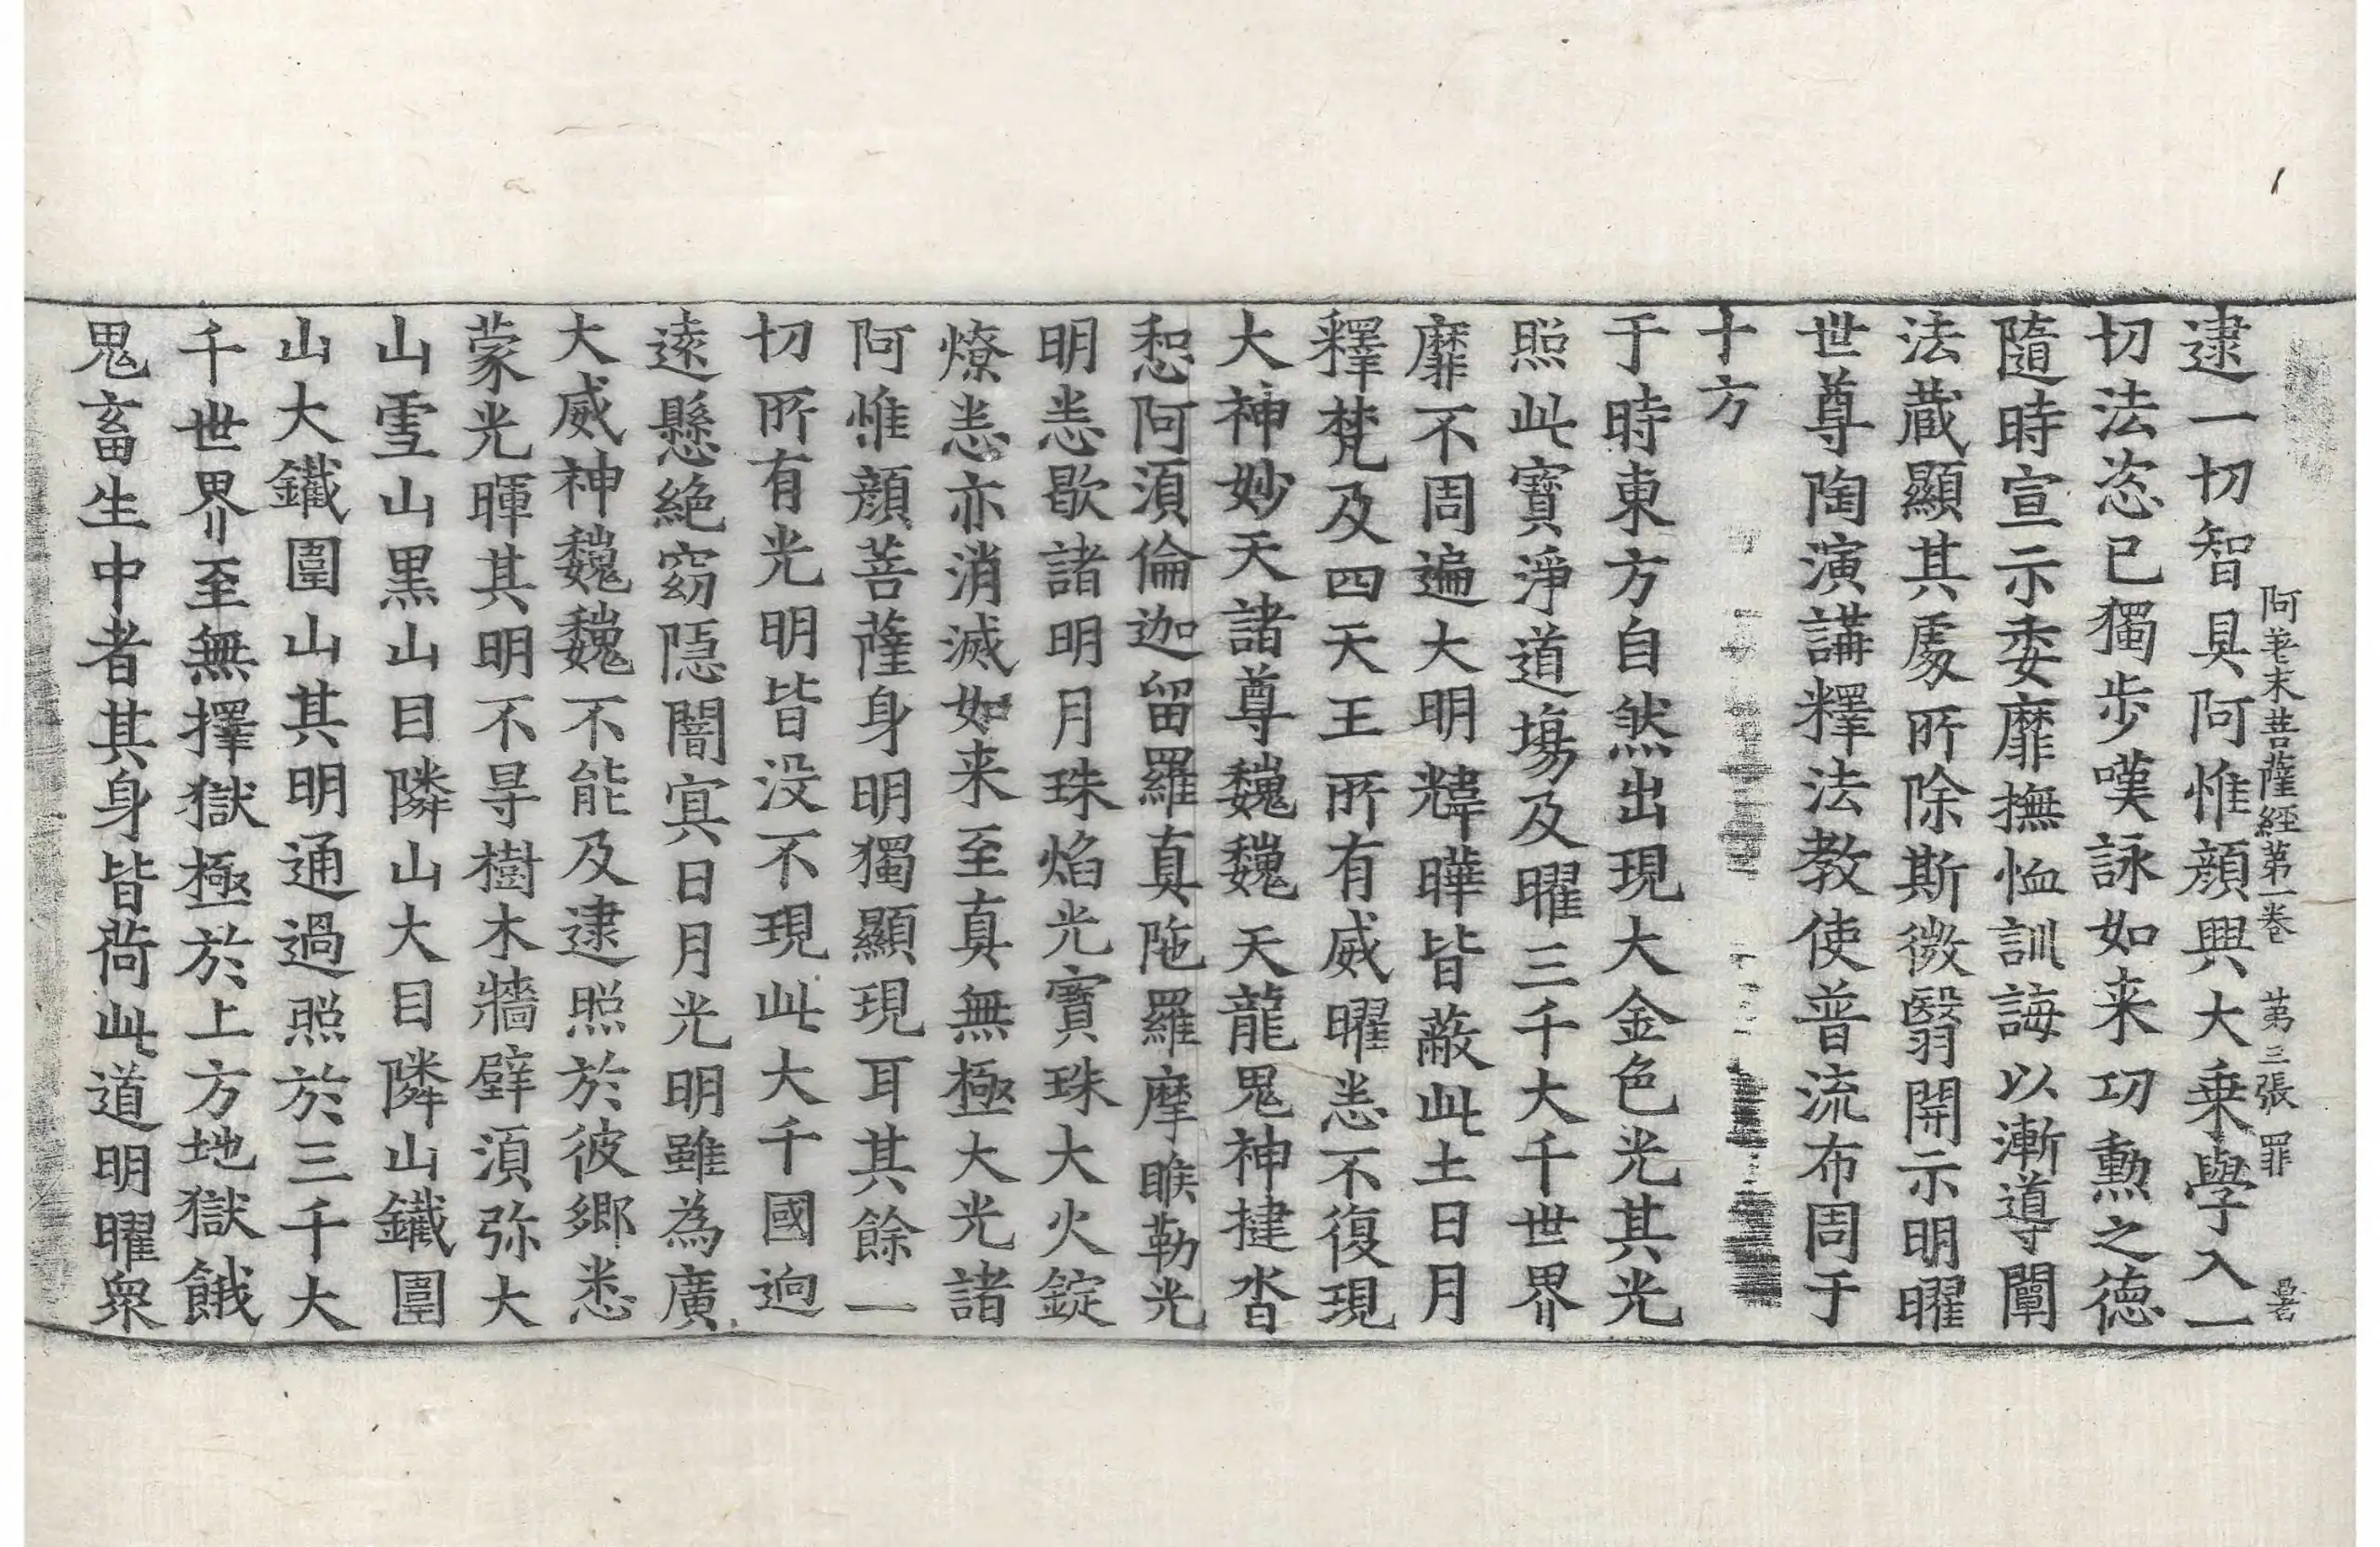 阿差末菩薩經第一卷　第三張　罪
逮一切智具阿惟顔興大乗學入一
切法恣已獨步嘆詠如来功勲之德
隨時宣示委靡撫恤訓誨以漸導闡
法蔵顯其處所除斯微翳開示明曜
世尊陶演講釋法教使普流布周于
十方
于時東方自然出現大金色光其光
照此寶淨道塲及曜三千大千世界
靡不周遍大明韑曄皆蔽此土日月
釋梵及四天王所有威曜恙不復現
大神妙天諸尊巍巍天龍鬼神揵沓
惒阿湏倫迦留羅真陁羅摩睺勒光
明恙歇諸明月珠焰光寳珠大火錠
燎恙亦消滅如来至真無極大光諸
阿惟顔菩薩身明獨顯現耳其餘一
切所有光明皆没不現此大千國逈
逺懸絶窈隠闇㝠日月光明雖為廣
大威神巍巍不能及逮照於彼郷悉
蒙光暉其明不㝵樹木牆壁湏弥大
山雪山黒山目隣山大目隣山鐵圍
山大鐵圍山其明通過照於三千大
千世界至無擇獄極於上方地獄餓
鬼畜生中者其身皆荷此道明曜衆